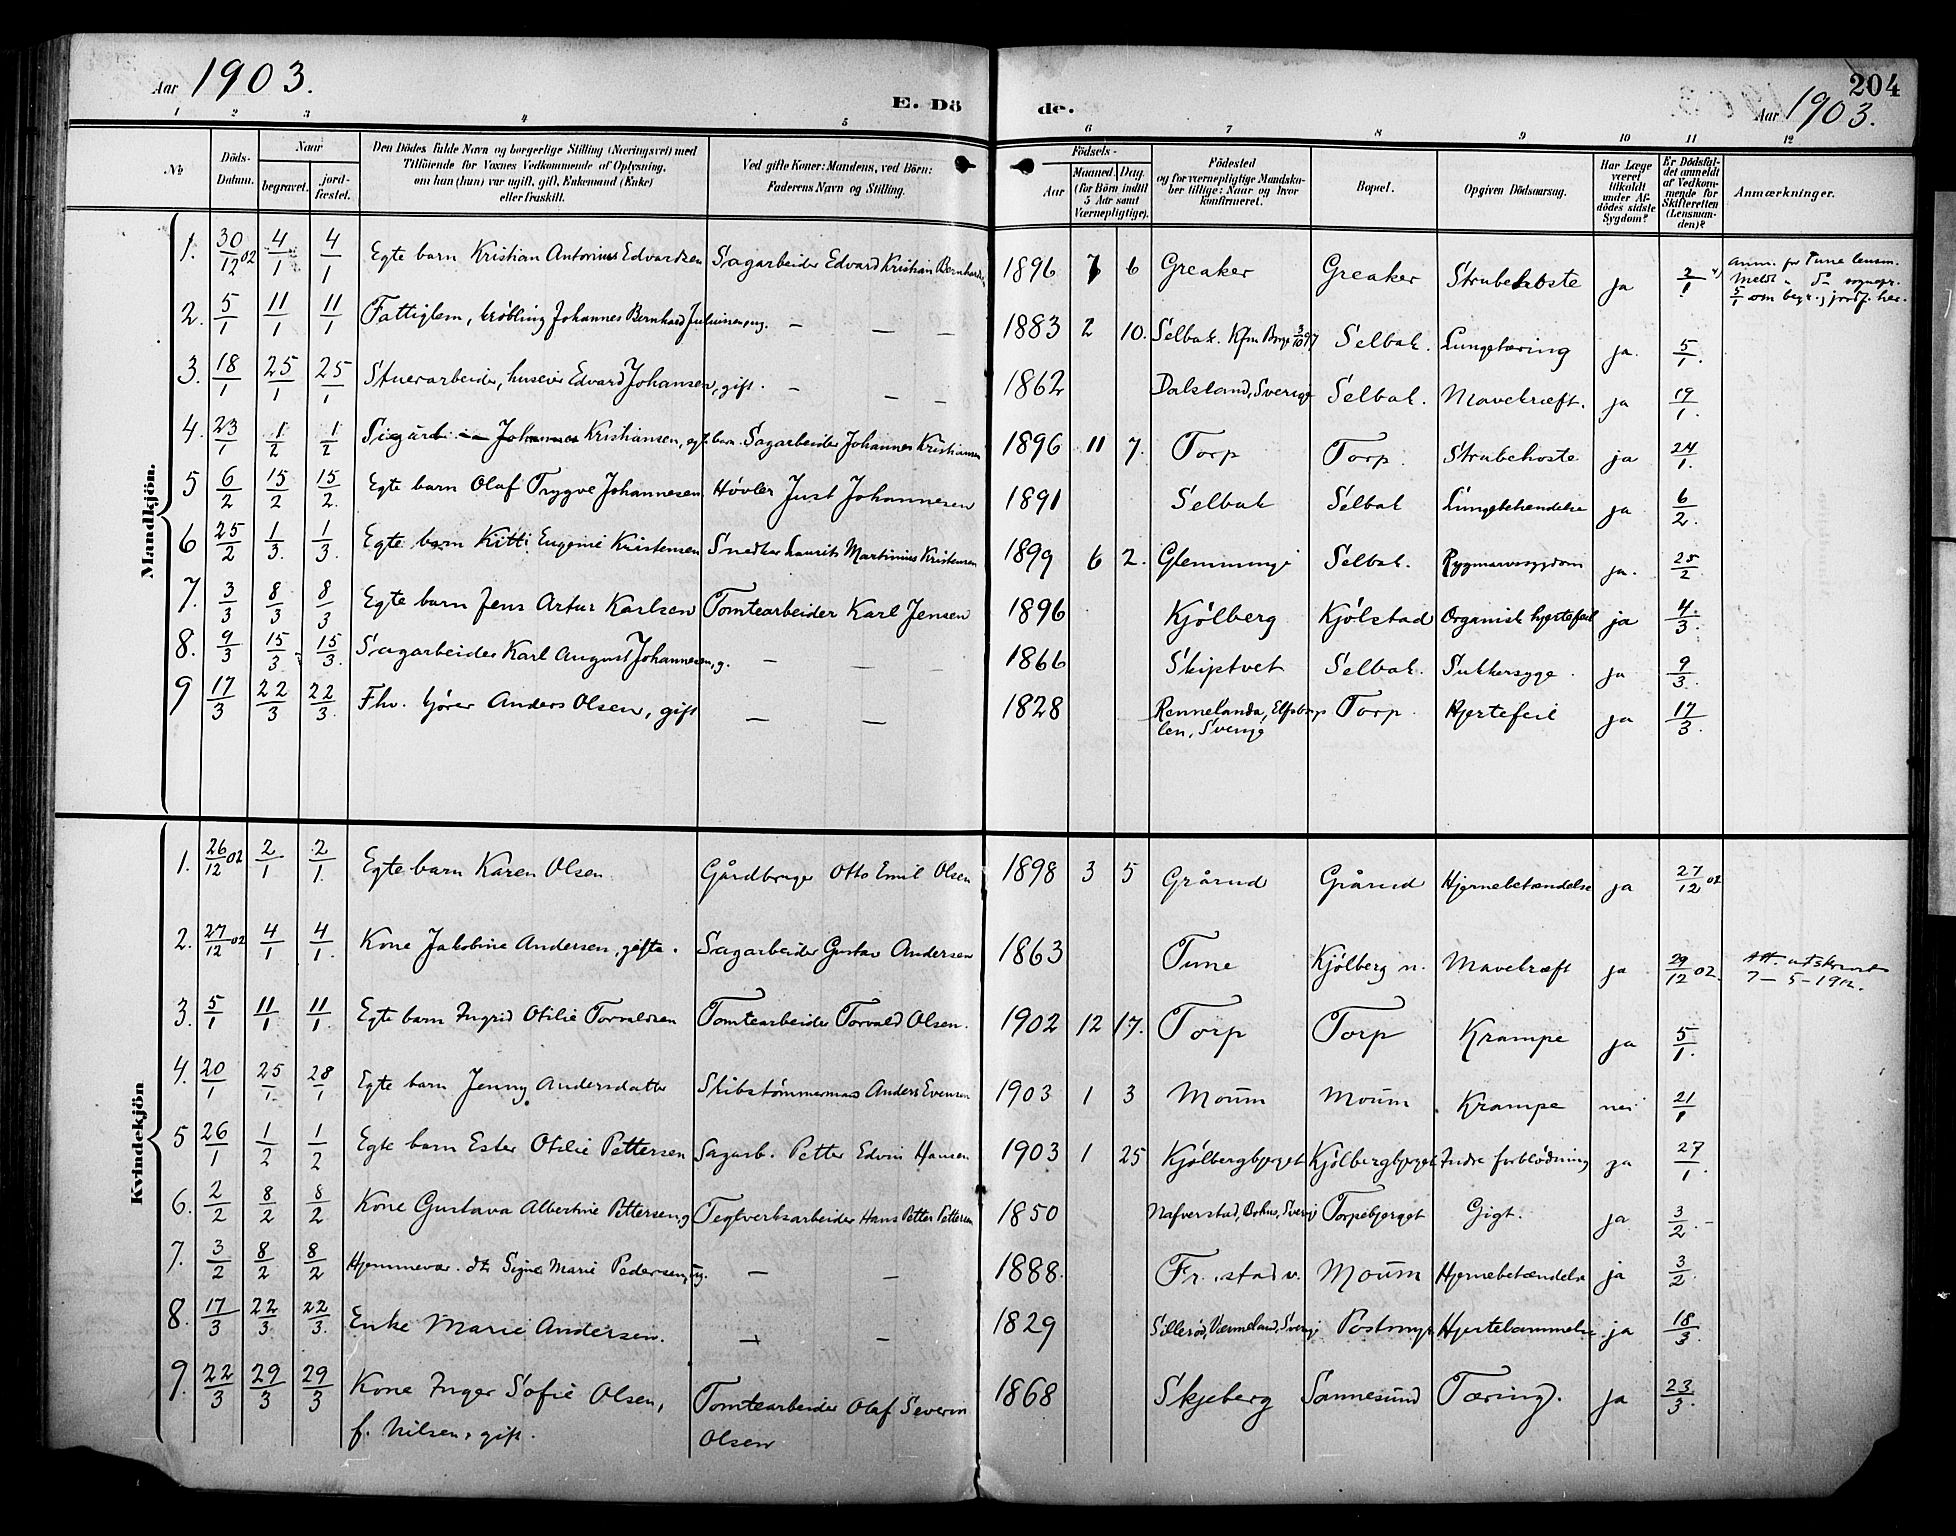 Aar 1903.
E. Dö
de.
204
Aar 1903.
1 2 3 4 5 6 7 8 9 10 11 12
№
Döds-
Datum.
Naar
begravet.
jord-
fæstet.
Den Dödes fulde Navn og borgerlige Stilling (Næringsvei) med
Tilföiende for Voxnes Vedkommende af Oplysning,
om han (hun) var ugift, gift, Enkemand (Enke)
eller fraskilt.
Ved gifte Koner: Mandens, ved Börn:
Faderens Navn og Stilling.
Födsels-
Aar
Maaned. Dag.
(for Börn indtil
5 Aar samt
Værnepligtige).
Födested
og for værnepligtige Mandska-
ber tillige: Naar og hvor
konfirmeret.
Bopæl.
Opgiven Dödsaarsag.
Har Læge
været
tilkaldt
under Af-
dödes sidste
Sygdom?
Er Dödsfal-
det anmeldt
af Vedkom-
mende for
Skifteretten
(Lensman-
den)?
Anmærkninger.
Mandkjön.
1. 30/12 02 4/1 4/1 Egte barn Kristian Antonius Edvardsen Sagarbeider Edvard Kristian 1896 7 6 Greaker Greaker Strubehoste ja 2/1
Anm. for Tune lensm.
Meldt
5/1 om begr. jordf. her.
2. 5/1 11/1 11/1 Fattiglem, krøbling Johannes Bernhard ug. — — — 1883 2 10. Selbak. Kfm Borge 3/10 97 Selbak. Lungetæring ja. 5/1.
3. 18/1 25/1 25/1 Stuerarbeider, huseier Edvard Johansen, gift. — — — 1862 Dalsland, Sverige Selbak. Mavekræft. ja 19/1.
4. 23/1 1/2 1/2 Sigurd Johannes Kristiansen, egt. barn. Sagarbeider Johannes Kristiansen 1896 11 7. Torp Torp. Strubehoste ja 24/1.
5 6/2 15/2 15/2. Egte barn Olaf Trygve Johannesen Høvler Just Johannesen 1891 Selbak Selbak Lungebetændelse ja 6/2.
6 25/2 1/3. 1/3. Egte barn Kitti Eugenie Kristensen Snedker Laurits Martinius Kristensen 1899 6 2. Glemminge Selbak. Rygmarvssygdom ja. 25/2
7. 3/3 8/3 8/3 Egte barn Jens Artur Karlsen Tomtearbeider Karl Jensen 1896 Kjölberg Kjölstad Organisk hjertefeil ja 4./3.
8. 9/3 15/3 15/3. Sagarbeider Karl August Johannesen, g. — — — 1866 Skiptvet Selbak. Sukkersyge. ja 9/3.
9 17/3 22/3 22/3. Fhv. kjører Anders Olsen, gift — — 1828 Rennelanda, Elfsborgs
len, Sverige Torp. Hjertefeil ja 17/3.
Kvindekjön
1. 26/12 02 2/1 2/1. Egte barn Karen Olsen Gårdbruger Otto Emil Olsen 1898 3 5 Grårud Grårud Hjernebetændelse ja 27/12 02
2. 27/12 02 4/1 4/1. Kone Jakobine Andersen, gifte. Sagarbeider Gustav Andersen 1863 Tune Kjölberg n. Mavekræft ja 29/12 02.
Att. utskrevet
7-5-19
3. 5/1 11/1 11/1. Egte barn Ingrid Otilie Torvaldsen Tomtearbeider Torvald Olsen. 1902 12 17. Torp Torp Krampe ja 5/1.
4. 20/1 25/1. 28/1 Egte barn Jenny Andersdatter Skibstømmermand Anders Evensen 1903 1 3 Moum Moum Krampe nei 21/1
5 26/1 1/2 1/2 Egte barn Ester Otilie Pettersen Sagarb. Petter Edvin Hansen 1903 1 25 Kjölbergbjerget Kjölbergbjerget Indre forblødning ja 27/1.
6. 2/2 8/2 8/2 Kone Gustava Albertine Pettersen, g Teglverksarbeider Hans Petter Pettersen 1850 Nafverstad, Bohus, Sverige Torpebjerget Gigt. ja 3/2.
7. 3/2 8/2 8/2 Hjemmevær. dtr Signe Marie Pedersen, ug. — — 1888. Fr.stad v. Moum Hjernebetændelse ja 3/2.
8. 17/3 22/3 22/3. Enke Marie Andersen. — — 1829 Sillerød, Værmeland, Sverige Hjertelammelse ja 18/3.
9. 22/3 29/3 29/3 Kone Inger Sofie Olsen,
f. Nilsen, gift. Tomtearbeider Olaf Severin
Olsen 1868 Skjeberg Sannesund Tæring. ja 23/3.